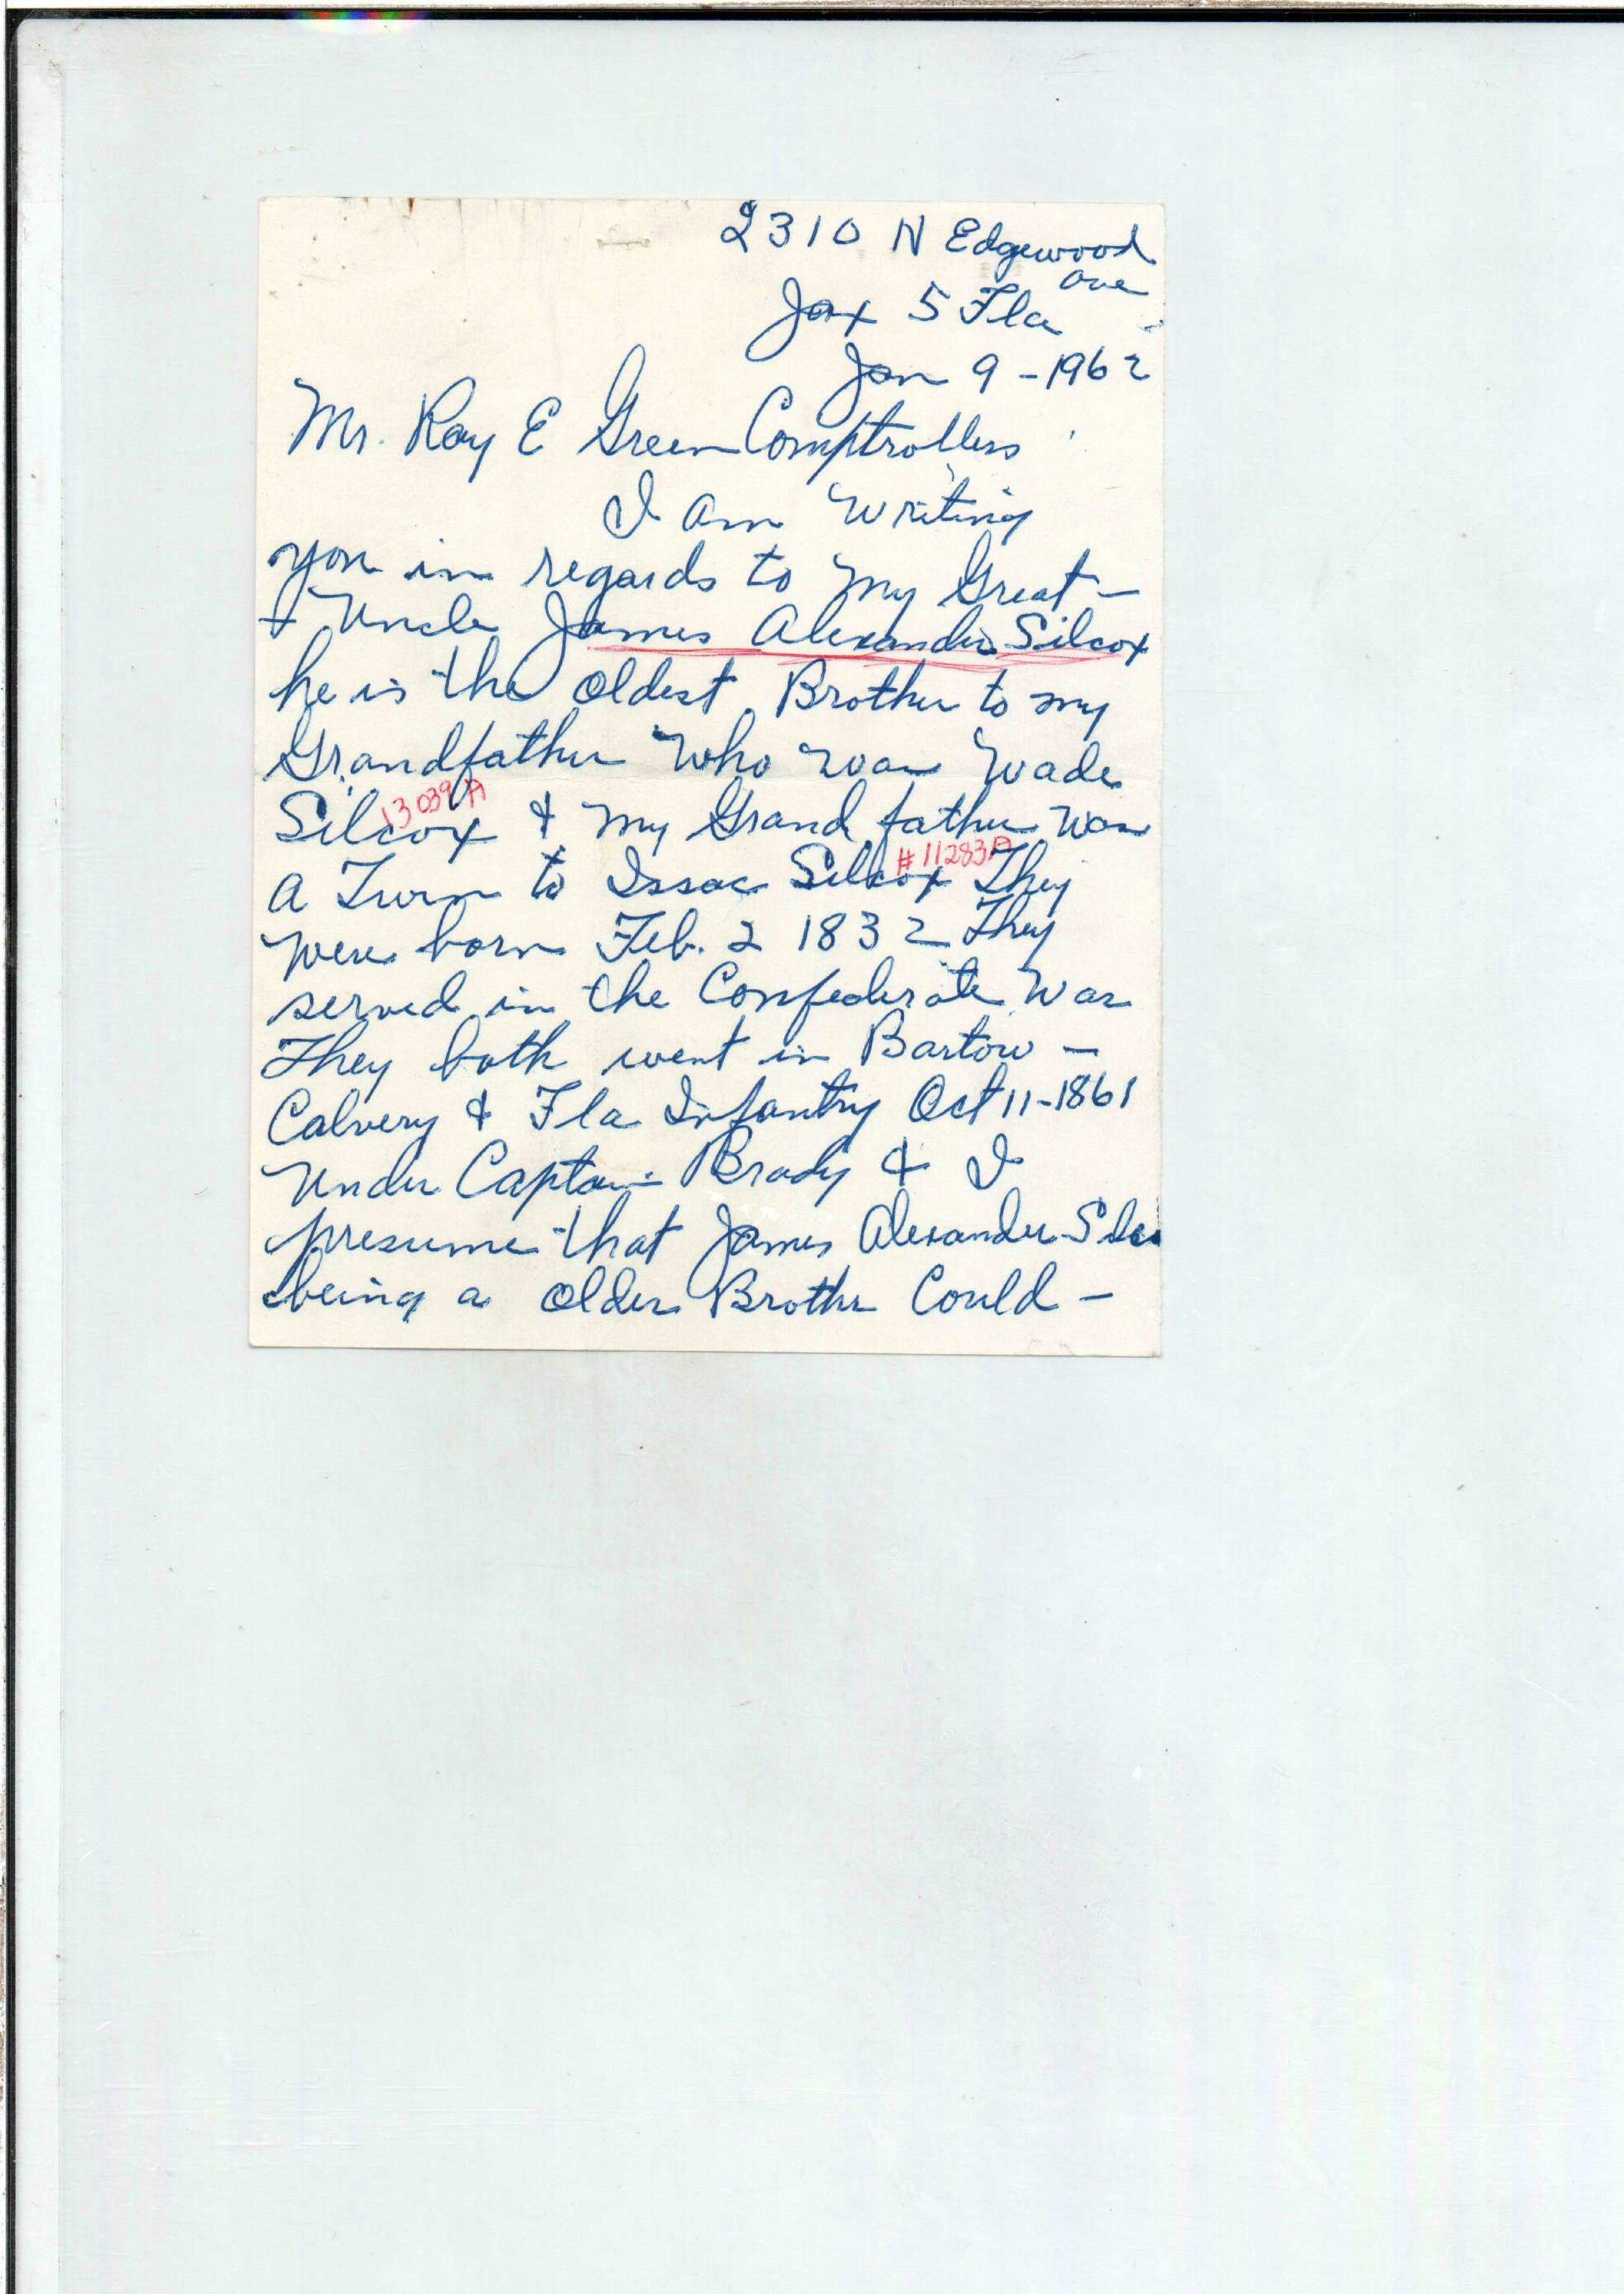 2310 N Edgewood
Ave
Jax 5 Fla
Jan 9 - 1962
Mr. Ray E Green Comptrollers
I am Writing
you in regards to my Great -
+ Uncle James Alexander Silcox
he is the oldest Brother to my
Grandfather Who was Wade
13039 A
Silcox & my Grand father was
#11283A
a Twin to Issac Silcox They
were born Feb. 2 1832 They
served in the Confederate War
They both went in Bartow -
Calvery & Fla Infantry Oct 11-1861
Under Captain Brady & I
presume that James Alexander
being a older Brother Could -